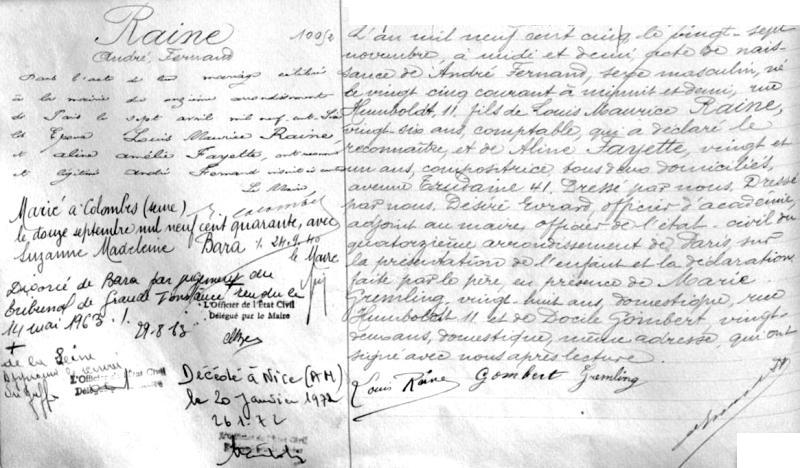 Raine
André, Fernand
10052
Par l'acte de mariage
à la mairie du onzième arrondissement
de Paris le sept avril mil neuf cent
Epoux Louis Maurice Raine,
et Aline Amélie Fayette, ont reconnu
et légitimé André Fernand
Le Maire
Marié à Colombes (Seine)
le douze septembre mil neuf cent quarante, avec
Suzanne Madeleine Bara /. 24.9.40
le Maire
Divorcé de Bara par jugement du
tribunal de Grande Instance rendu le
14 mai 1963 ./.
29-8-63
L'Officier de l'État Civil
Délégué par le Maire
+
de la Seine
L'Officier de l'État Civil
Délégué par le Maire
Décédé à Nice (AM)
le 20 Janvier 1972
26 1. 72
L'an mil neuf cent cinq le vingt-sept
novembre, à midi et demi acte de nais-
sance de André Fernand, sexe masculin, né
le vingt cinq courant à minuit et demi, rue
Humboldt, 11, fils de Louis Maurice Raine,
vingt six ans, comptable, qui a déclaré le
reconnaître, et de Aline Fayette, vingt et
un ans, compositrice, tous deux domiciliés,
avenue Trudaine 41. Dressé par nous, Dressé
par nous, Désiré Evrard, officier d'académie,
adjoint au maire, officier de l'état-civil du
quatorzième arrondissement de Paris, sur
la présentation de l'enfant et la déclaration
faite par le père, en présence de Marie
Gremling, vingt huit ans, domestique, rue
Humboldt 11 et de Docile Gombert, vingt-
deux ans, domestique, même adresse, qui ont
signé avec nous après lecture.
Louis Raine Gombert Gremling